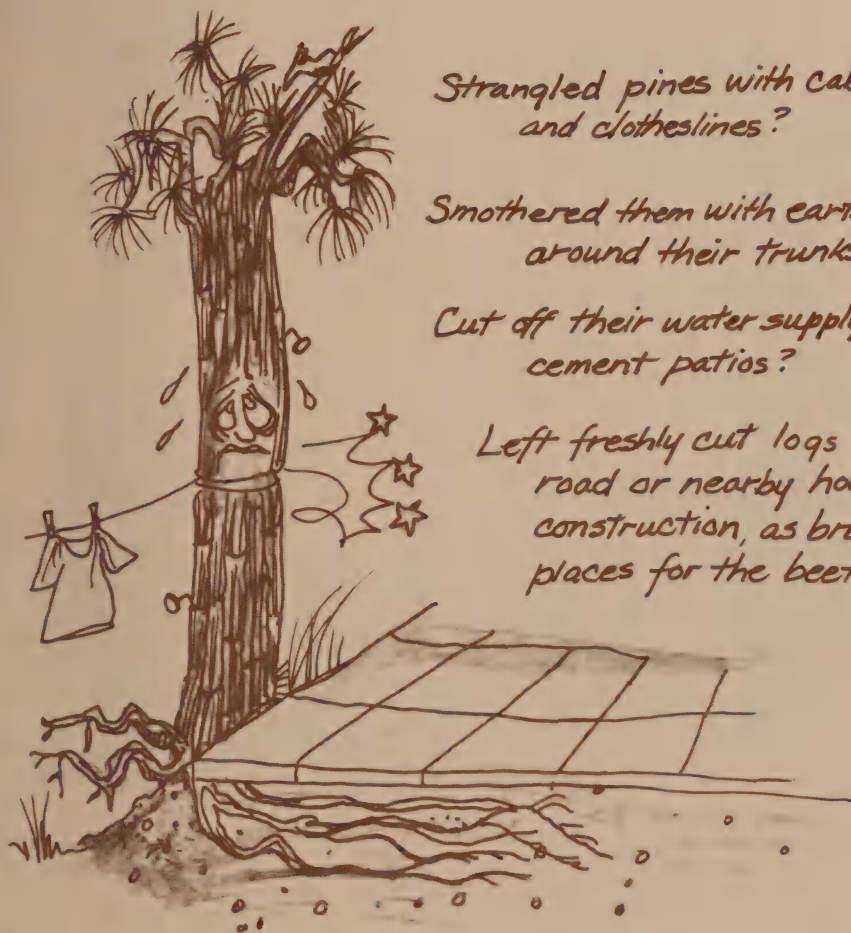 Strangled pines with
and clotheslines?
Smothered them with
around their trunks
Cut off their water supply
cement patios?
Left freshly cut logs
road or nearby
construction, as
places for the